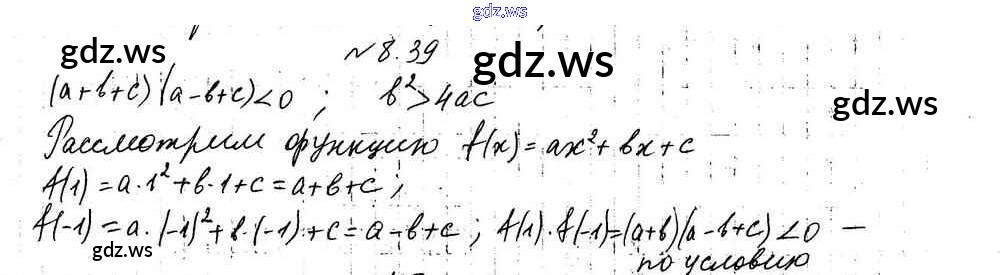 gdz.ws
№ 8.39
gdz.ws gdz.ws
(a+b+c)(a-b+c)<0 ; b²>4ac
gdz.ws
Рассмотрим функцию f(x)=ax²+bx+c
f(1)=a·1²+b·1+c=a+b+c;
f(-1)=a·(-1)²+b·(-1)+c=a-b+c; f(1)·f(-1)=(a+b)(a-b+c)<0 —
gdz.ws по условию